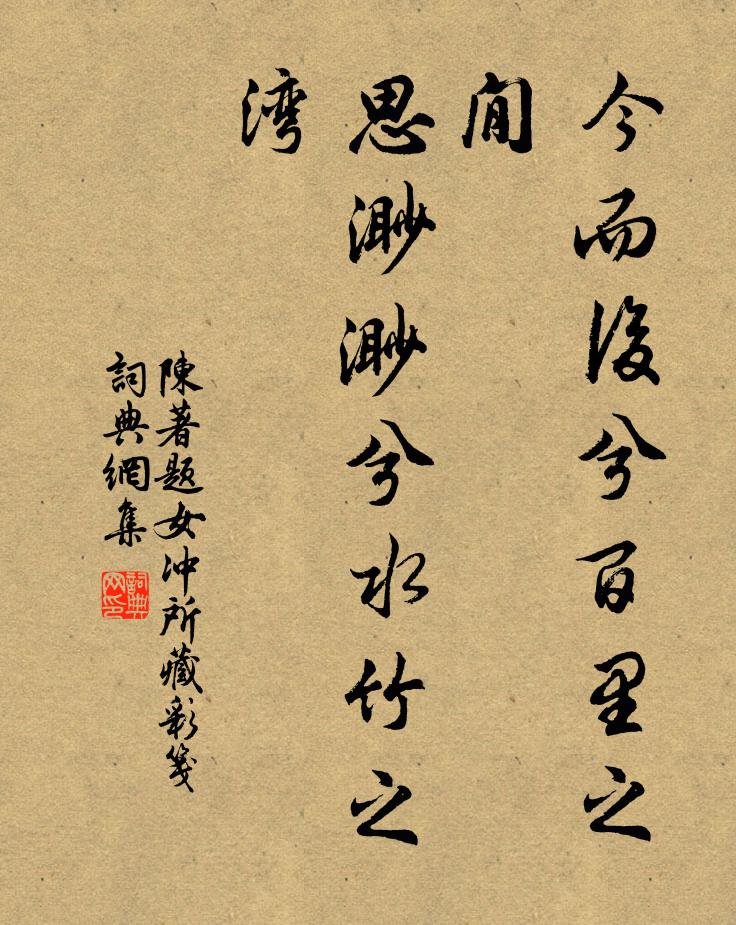 今而後兮百里之
間
思渺渺兮水竹之
湾
陳著題女冲所藏彩箋
詞典網集
詞典网印